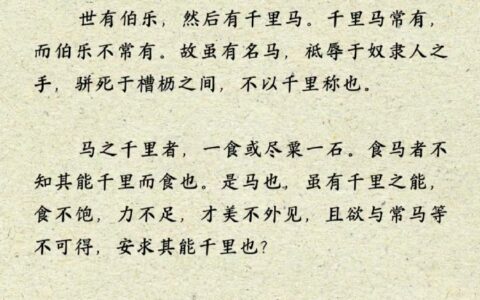 世有伯乐，然后有千里马。千里马常有，
而伯乐不常有。故虽有名马，祗辱于奴隶人之
手，骈死于槽枥之间，不以千里称也。
马之千里者，一食或尽粟一石。食马者不
知其能千里而食也。是马也，虽有千里之能，
食不饱，力不足，才美不外见，且欲与常马等
不可得，安求其能千里也？